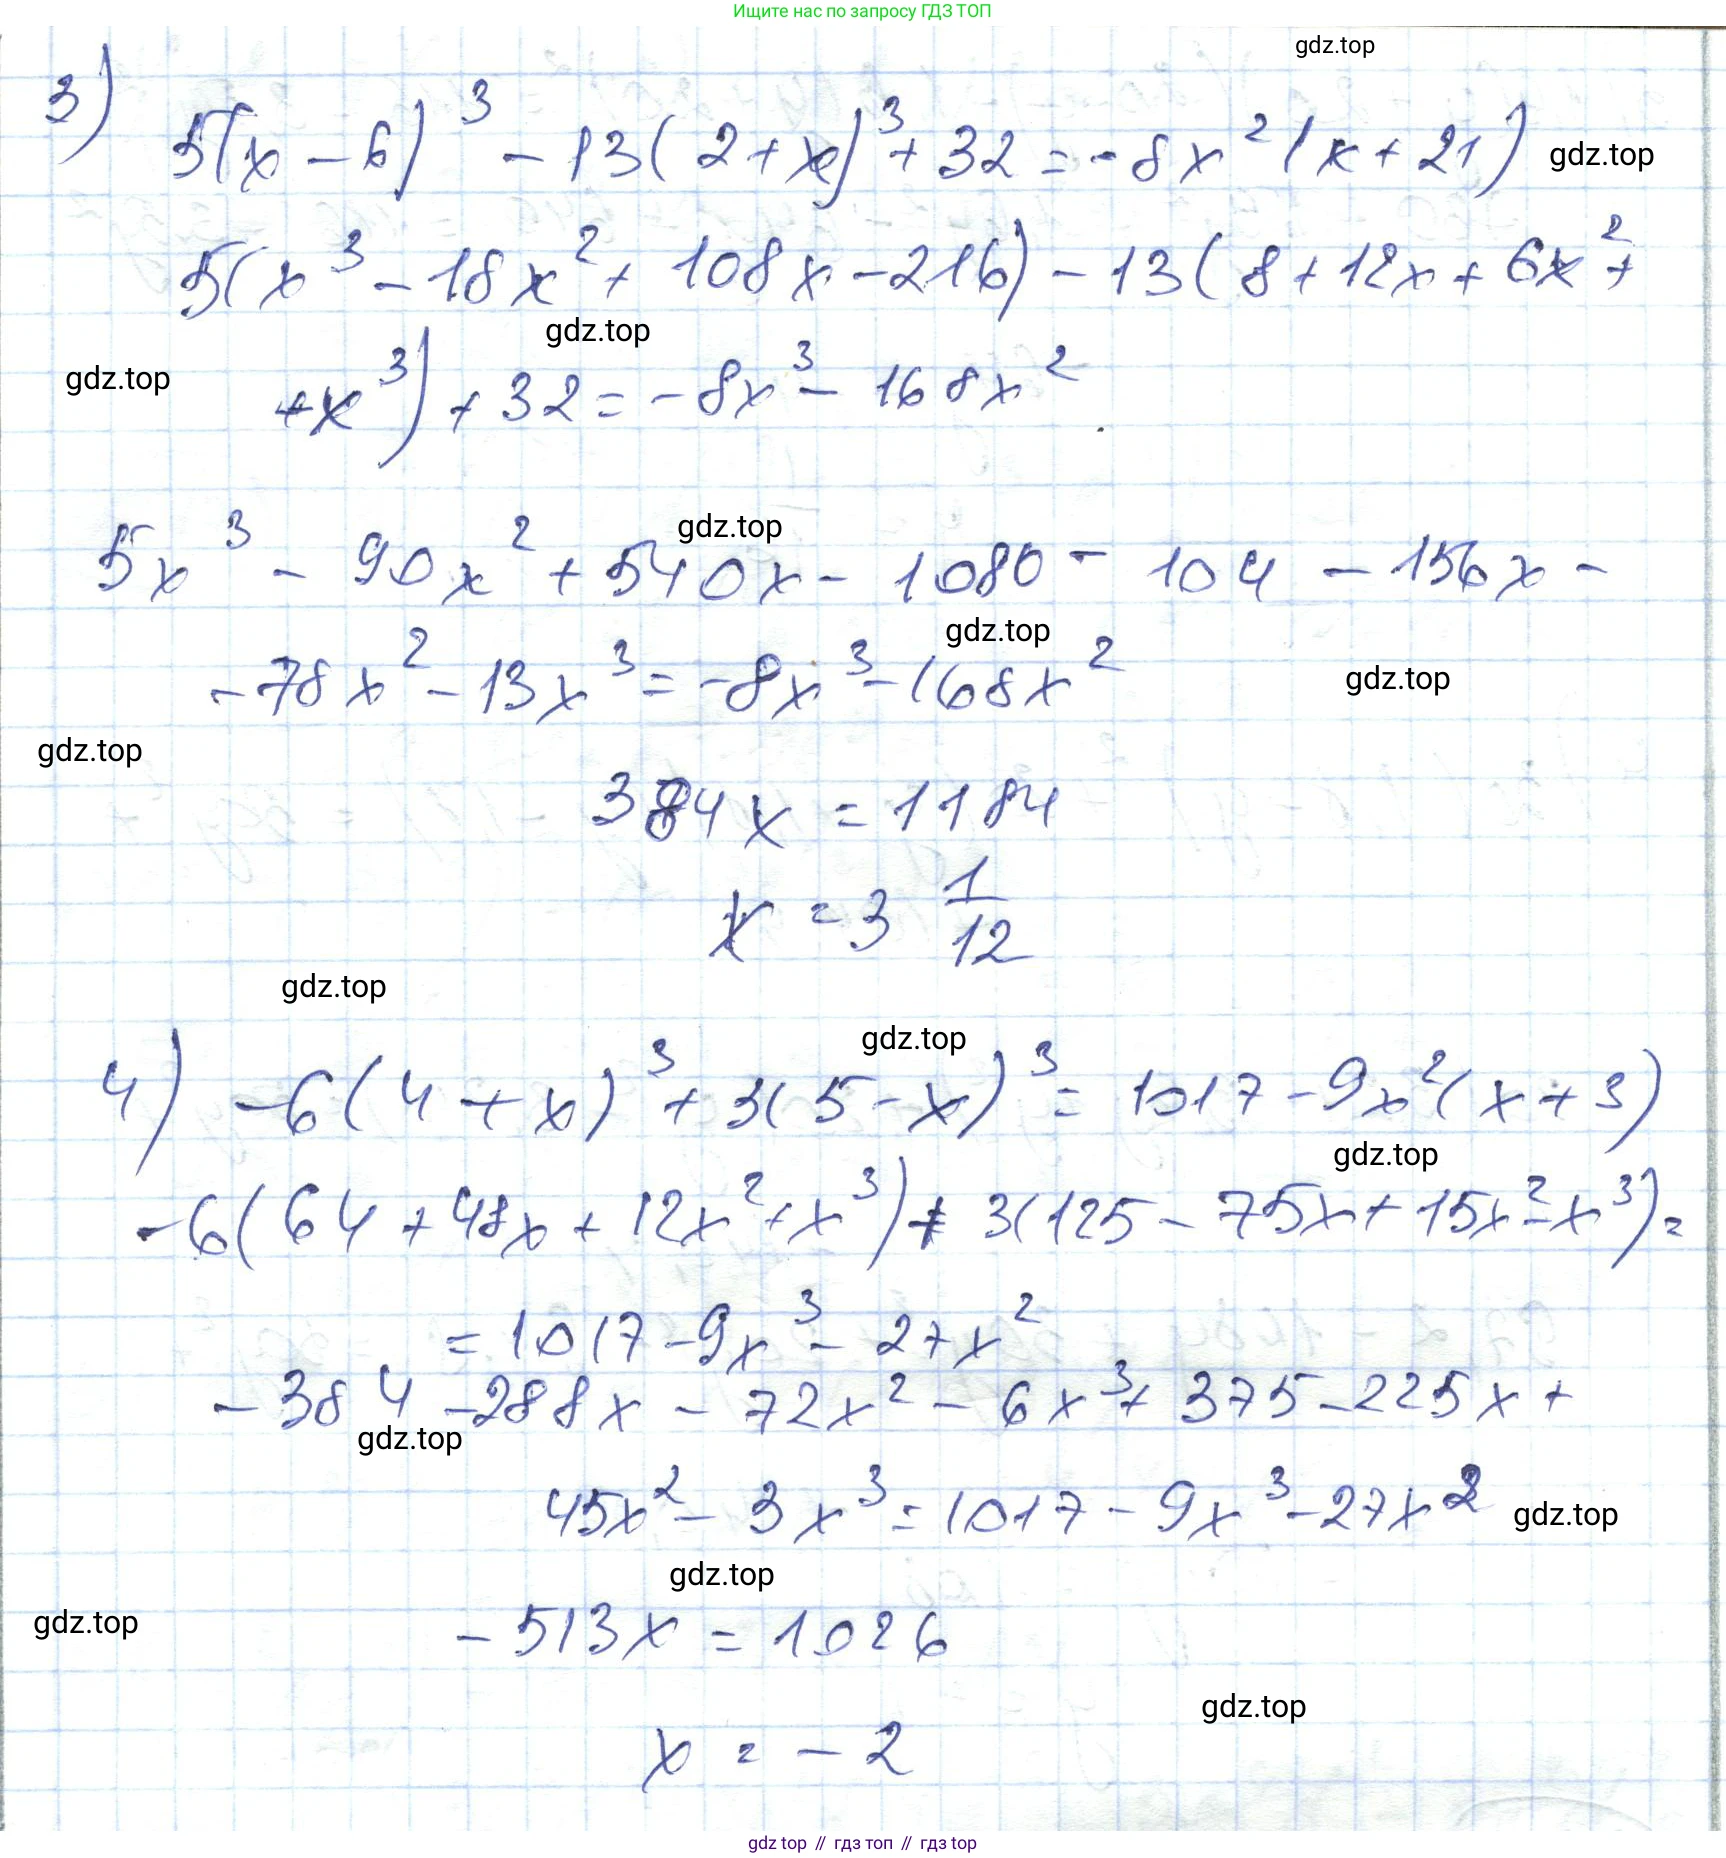 Ищите нас по запросу ГДЗ ТОП
gdz.top
3) 5(x - 6)³ - 13(2 + x)³ + 32 = -8x²(x + 21)
gdz.top
5(x³ - 18x² + 108x - 216) - 13(8 + 12x + 6x² +
gdz.top
gdz.top
+x³) + 32 = -8x³ - 168x²
gdz.top
5x³ - 90x² + 540x - 1080 - 104 - 156x -
gdz.top
-78x² - 13x³ = -8x³ - 168x²
gdz.top
gdz.top
384x = 1184
x = 3 1/12
gdz.top
gdz.top
4) -6(4 + x)³ + 3(5 - x)³ = 1017 - 9x²(x + 3)
gdz.top
-6(64 + 48x + 12x² + x³) + 3(125 - 75x + 15x² - x³) =
= 1017 - 9x³ - 27x²
-384 - 288x - 72x² - 6x³ + 375 - 225x +
gdz.top
45x² - 3x³ = 1017 - 9x³ - 27x²
gdz.top
gdz.top
gdz.top
-513x = 1026
gdz.top
x = -2
gdz top // гдз топ // гдз top